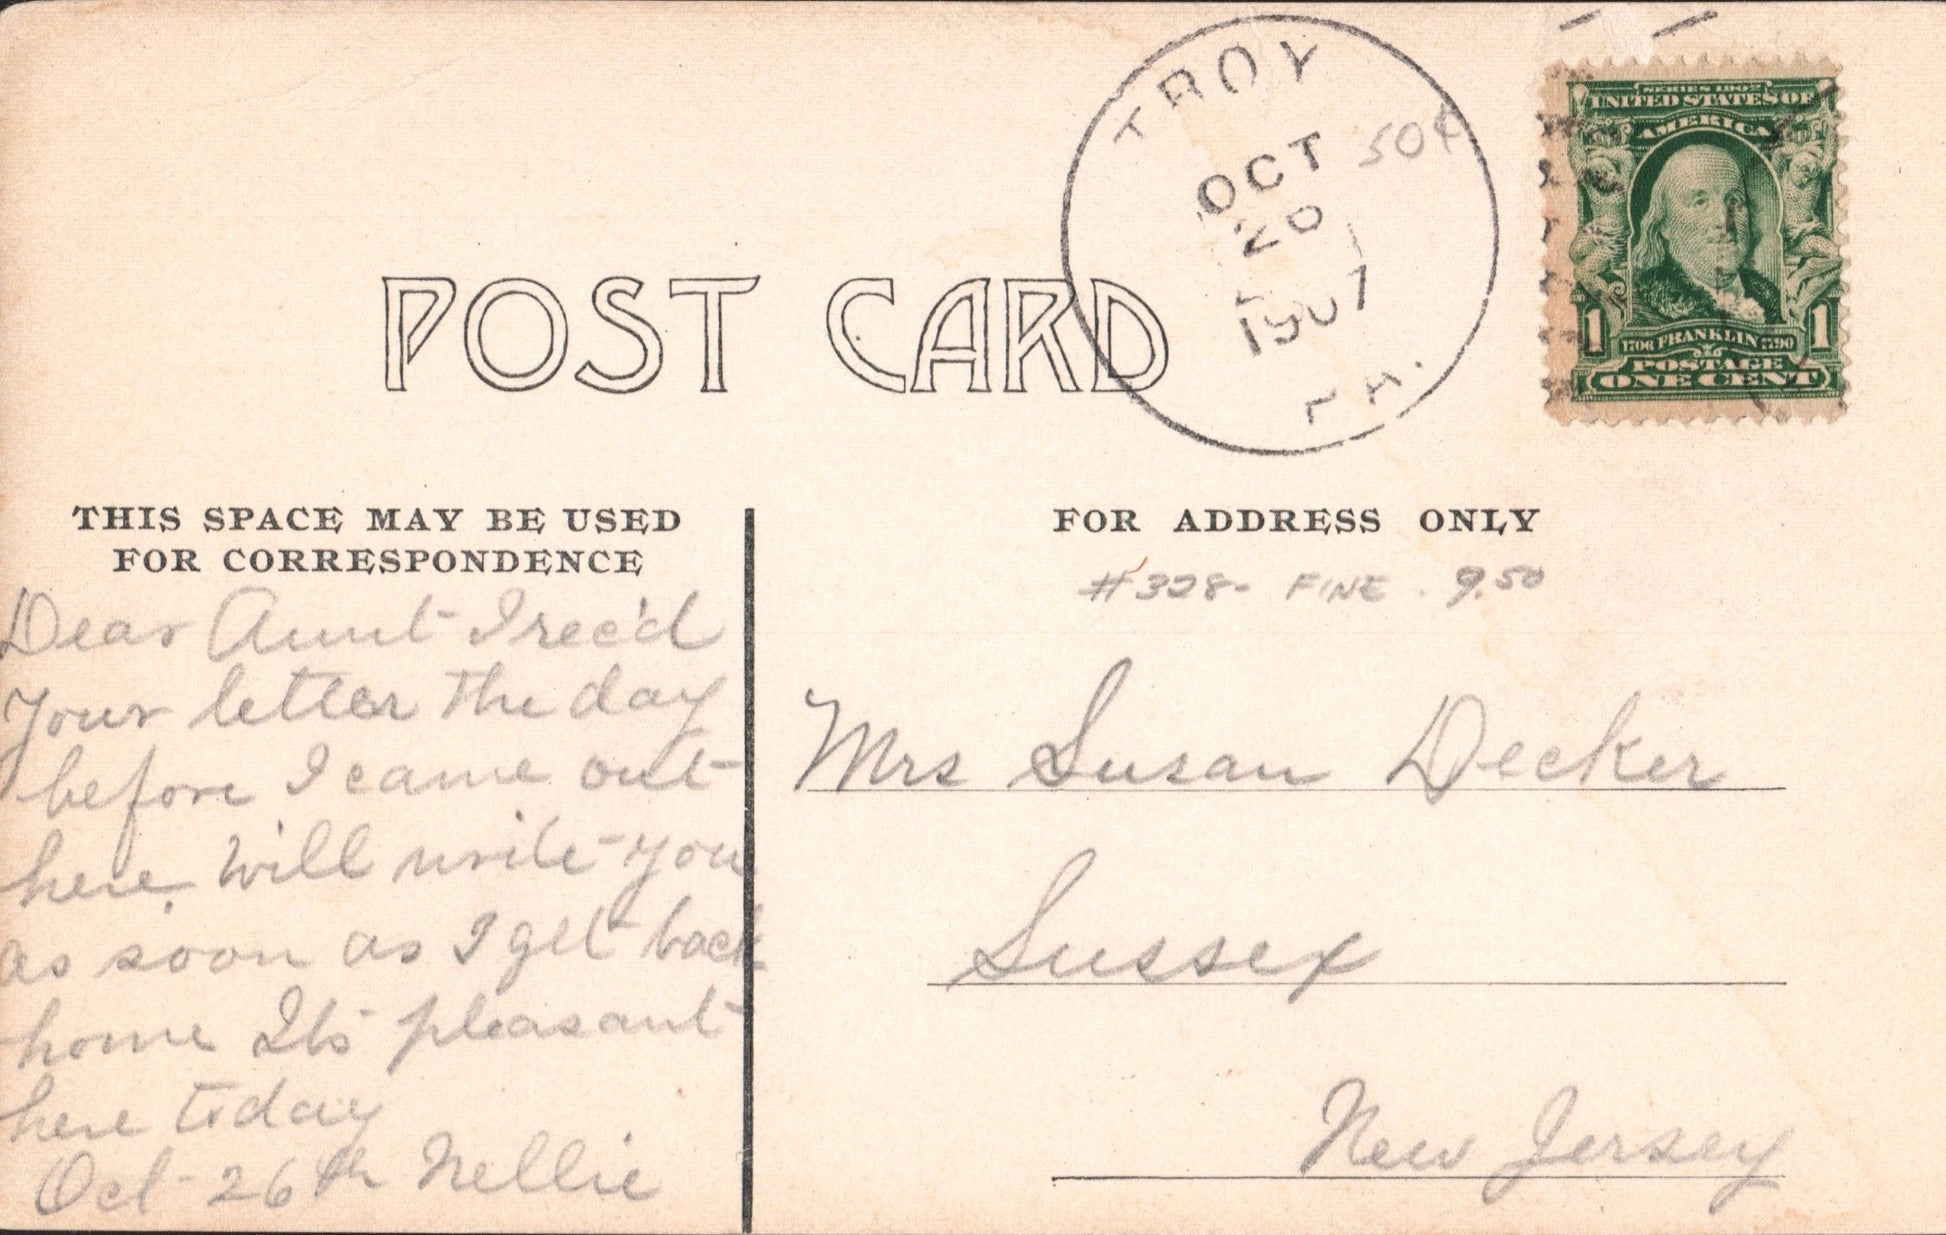 TROY
OCT
1907
PA.
50¢
SERIES 1902
UNITED STATES OF
AMERICA
1 1
1706 FRANKLIN 1790
POSTAGE
ONE CENT
POST CARD
THIS SPACE MAY BE USED
FOR CORRESPONDENCE
Dear Aunt I rec'd
your letter the day
before I came out
here. Will write you
as soon as I get back
home Its pleasant
here today
Oct 26th Nellie
FOR ADDRESS ONLY
#328- FINE. 9.50
Mrs Susan Decker
Sussex
New Jersey